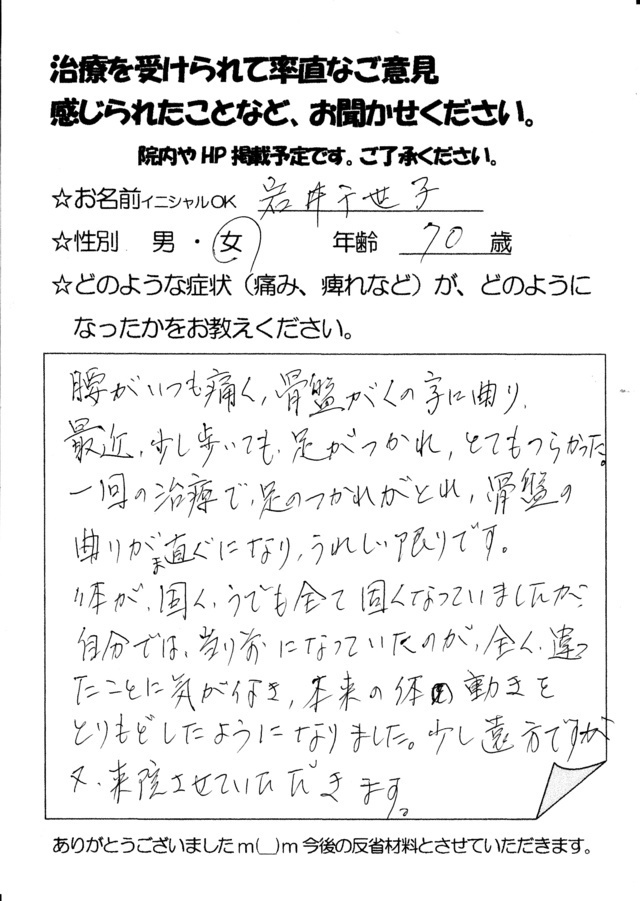 治療を受けられて率直なご意見
感じられたことなど、お聞かせください。
院内やHP掲載予定です。ご了承ください。
☆お名前イニシャルOK 岩井千世子
☆性別 男・女 年齢 70 歳
☆どのような症状（痛み、痺れなど）が、どのように
なったかをお教えください。
腰がいつも痛く、骨盤がくの字に曲り、
最近、少し歩いても、足がつかれ、とてもつらかった。
一回の治療で、足のつかれがとれ、骨盤の
曲りがま直ぐになり、うれしい限りです。
体が、固く、うでも全て固くなっていましたが、
自分では、当り前になっていたのが、全く、違っ
たことに気が付き、本来の体の動きを
とりもどしたようになりました。少し遠方ですが
又、来院させていただきます。
ありがとうございましたm(__)m今後の反省材料とさせていただきます。